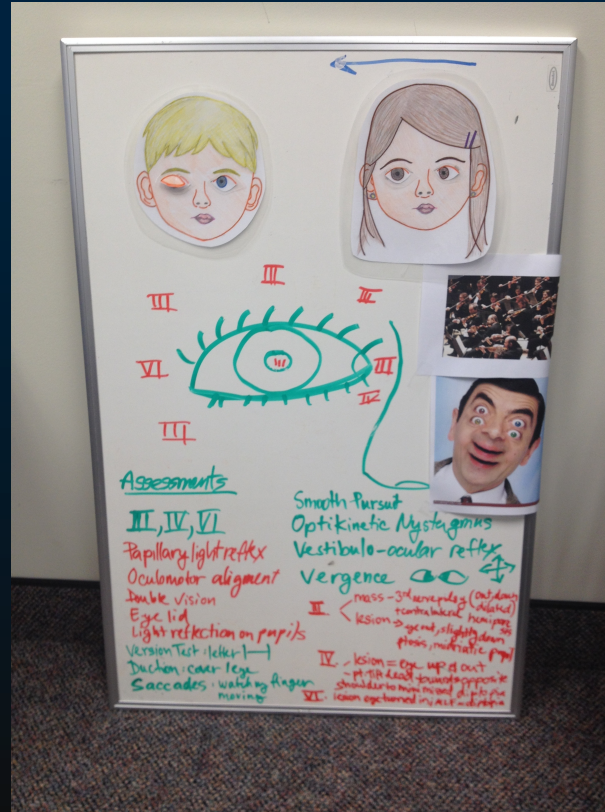 III
III
III
VI
III
III
IV
III
Assessments
III, IV, VI
Papillary light reflex
Oculomotor aligment
Double vision
Eye lid
Light reflection on pupils
Version Test: letter H
Duction: cover 1 eye
Saccades: watch my finger
moving
Smooth Pursuit
Optikinetic Nystagmus
Vestibulo-ocular reflex
Vergence
III
mass - 3rd nerve palsy (out, down
dilated)
+ contralateral hemipare
sis
lesion → slightly down
ptosis, midriatic pupil
IV - lesion = eye up & out
- pt. tilt head towards opposite
shoulder to minimized diplopia
VI - lesion eye turned in, diplopia